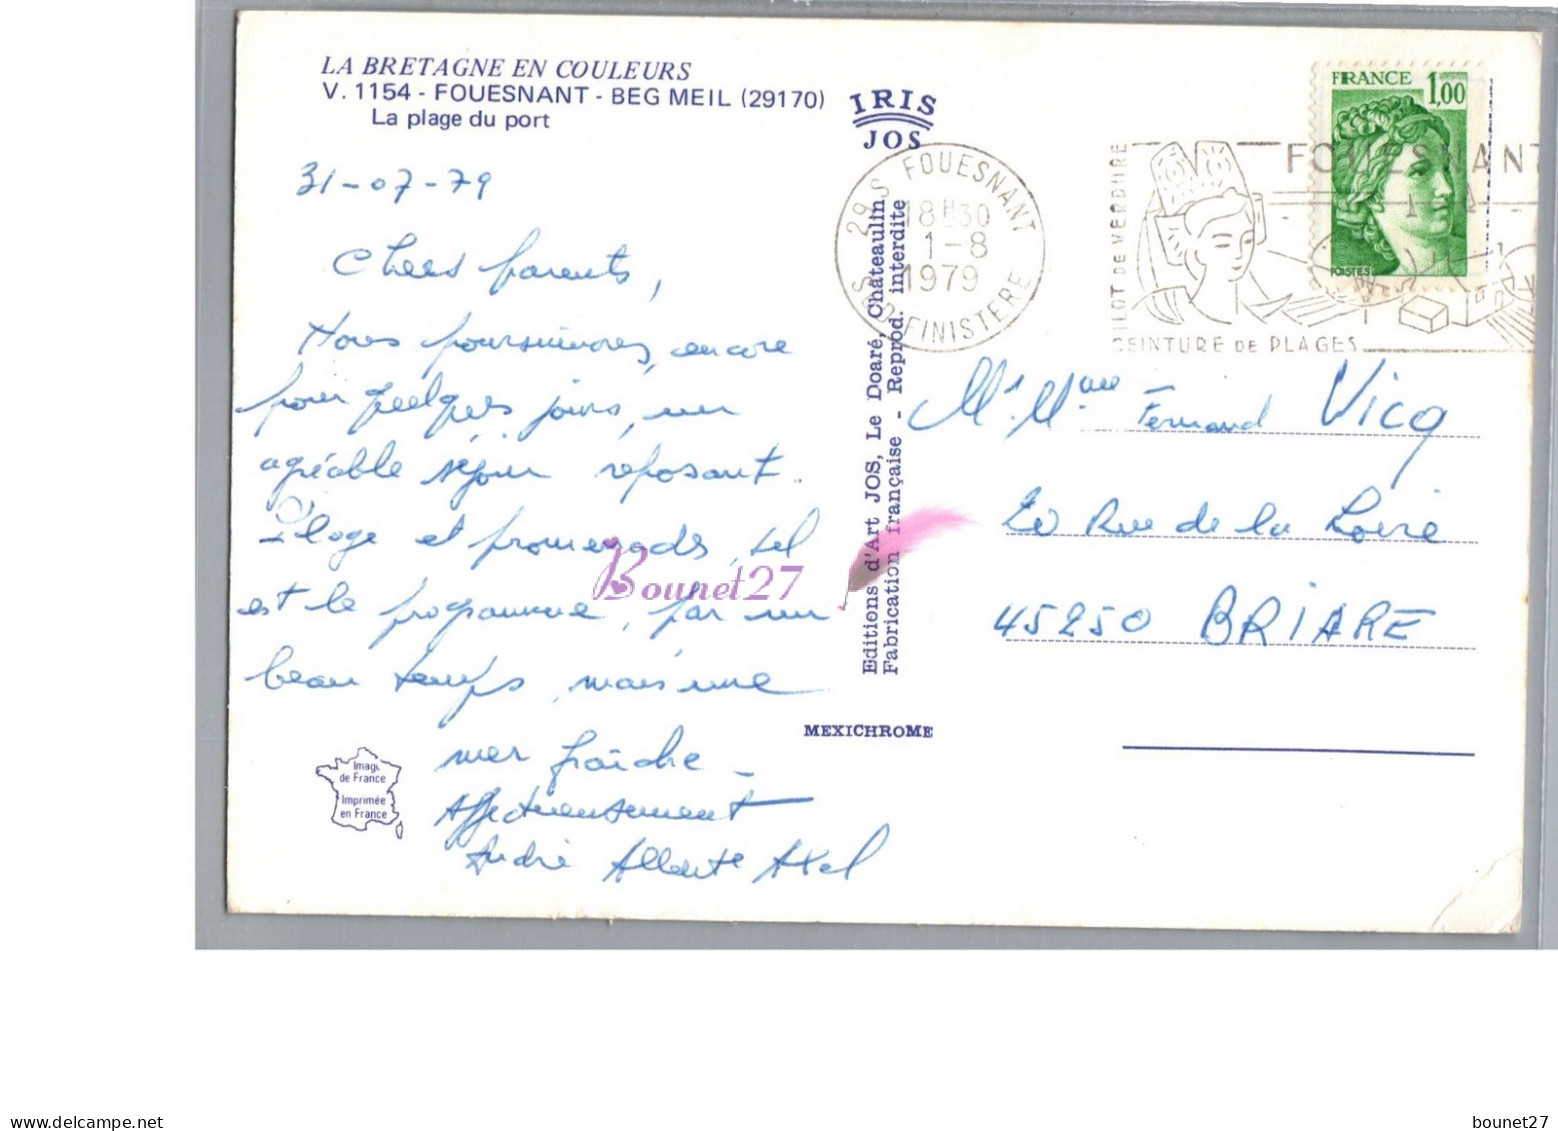 LA BRETAGNE EN COULEURS
V. 1154 - FOUESNANT - BEG MEIL (29170)
La plage du port
IRIS
JOS
31-07-79
Chers parents,
Nous poursuivons, encore
pour quelques jours, un
agréable séjour reposant.
Plage et promenads, tel
est le programme, par un
beau temps, mais une
mer fraîche -
Affectueusement
André Axel
Image
de France
Imprimée
en France
Editions d'Art JOS, Le Doaré, Chateaulin
Fabrication française - Reprod. interdite
MEXICHROME
29.S FOUESNANT
18H30
1-8
1979
S D-FINISTERE
ILOT DE VERDURE
CEINTURE DE PLAGES
FOUESNANT
FRANCE
1,00
POSTES
Mr. Mme Fernand Vicq
20 Rue de la Loire
45250 BRIARE
Bounet27
delcampe.net
bounet27